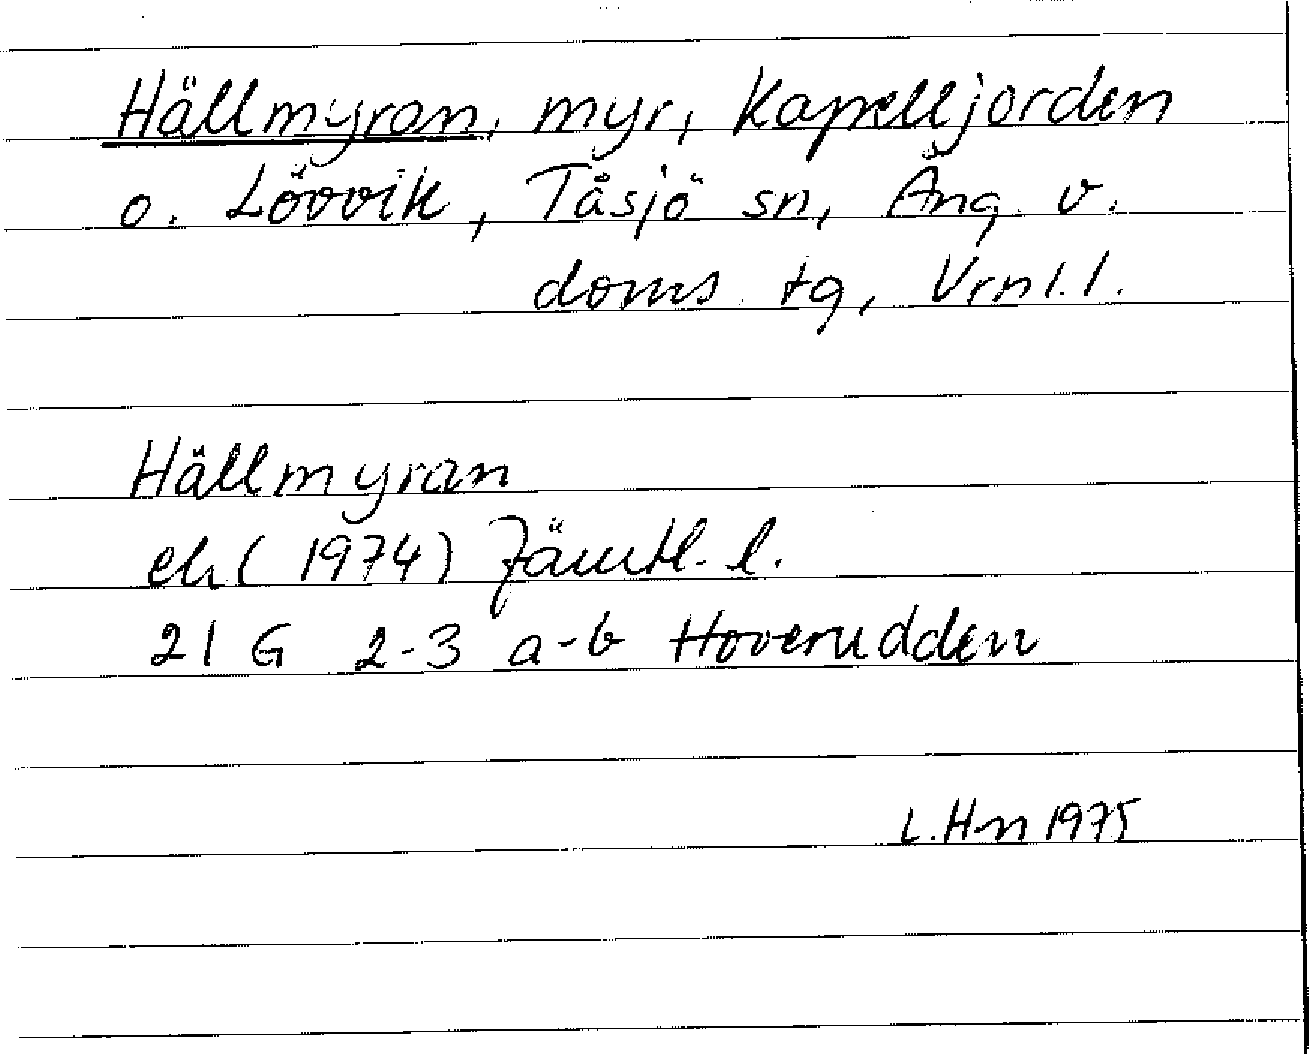 Hällmyran, myr, Kapelljorden
o. Lövvik, Tåsjö sn, Ång. v.
doms tg, Vrnl. l.
Hällmyran
ek (1974) Jämtl. l.
21 G 2-3 a-b Hoverudden
L. Hn 1975